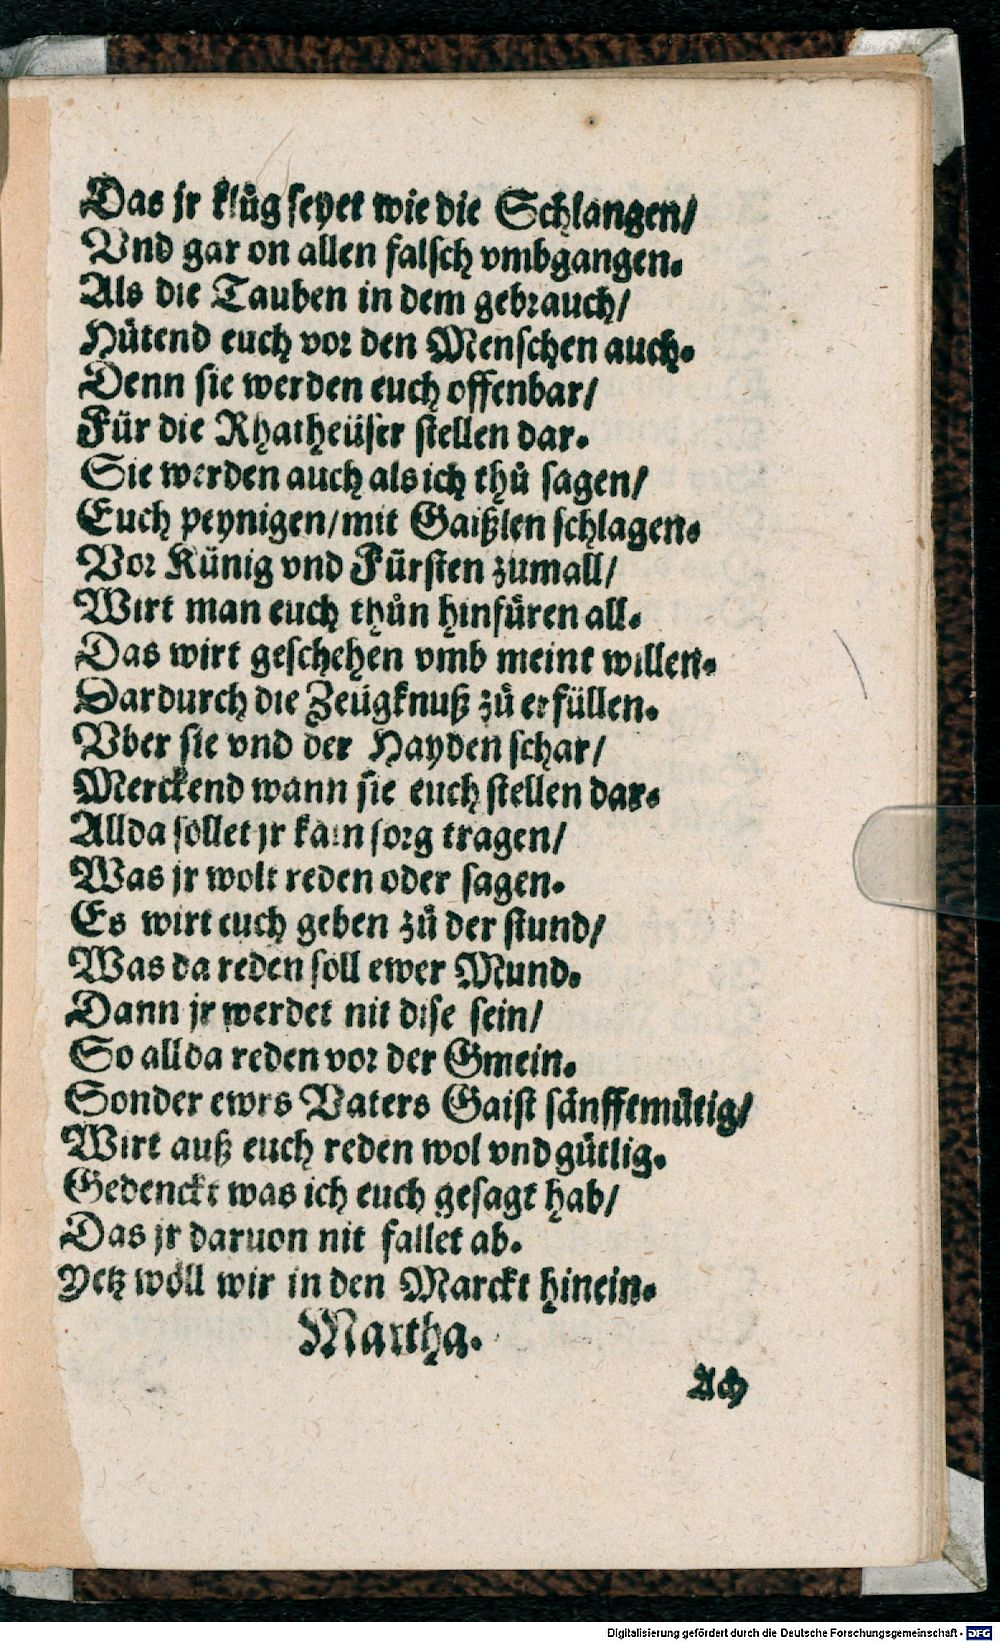 Das jr klůg seyet wie die Schlangen/
Vnd gar on allen falsch vmbgangen.
Als die Tauben in dem gebrauch/
Hütend euch vor den Menschen auch.
Denn sie werden euch offenbar/
Für die Rhatheüser stellen dar.
Sie werden auch als ich thů sagen/
Euch peynigen/mit Gaißlen schlagen.
Vor Künig vnd Fürsten zumall/
Wirt man euch thůn hinfüren all.
Das wirt geschehen vmb meint willen.
Dardurch die Zeügknuß zů erfüllen.
Vber sie vnd der Hayden schar/
Merckend wann sie euch stellen dar.
Allda sollet jr kain sorg tragen/
Was jr wolt reden oder sagen.
Es wirt euch geben zů der stund/
Was da reden soll ewer Mund.
Dann jr werdet nit dise sein/
So allda reden vor der Gmein.
Sonder ewrs Vaters Gaist sänfftmütig/
Wirt auß euch reden wol vnd gütlig.
Gedenckt was ich euch gesagt hab/
Das jr daruon nit fallet ab.
Yetz wöll wir in den Marckt hinein.
Martha.
Ach
Digitalisierung gefördert durch die Deutsche Forschungsgemeinschaft - DFG